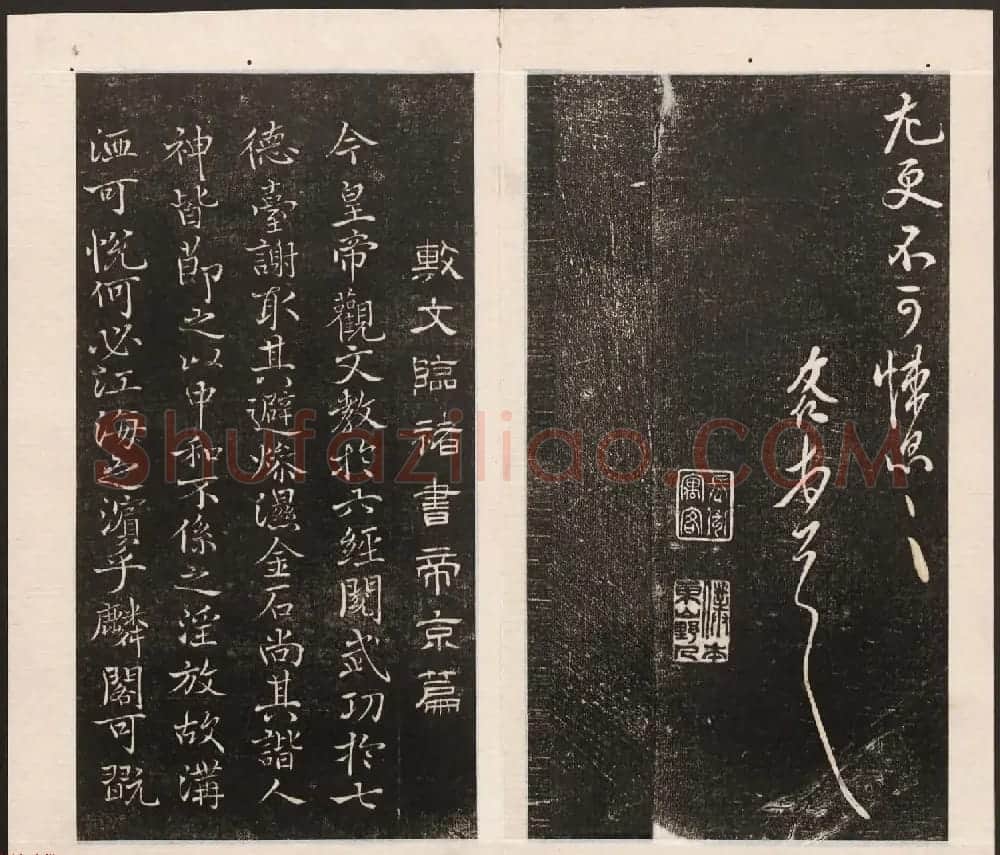 尤更不可悚息〻
敷文臨褚書帝京篇
今皇帝觀文教於六經閱武功於七
德臺謝取其避燥濕金石尚其諧人
神皆節之以申和不係之淫放故溝
洫可悅何必江海之濱乎麟閣可翫
Shufaziliao.COM